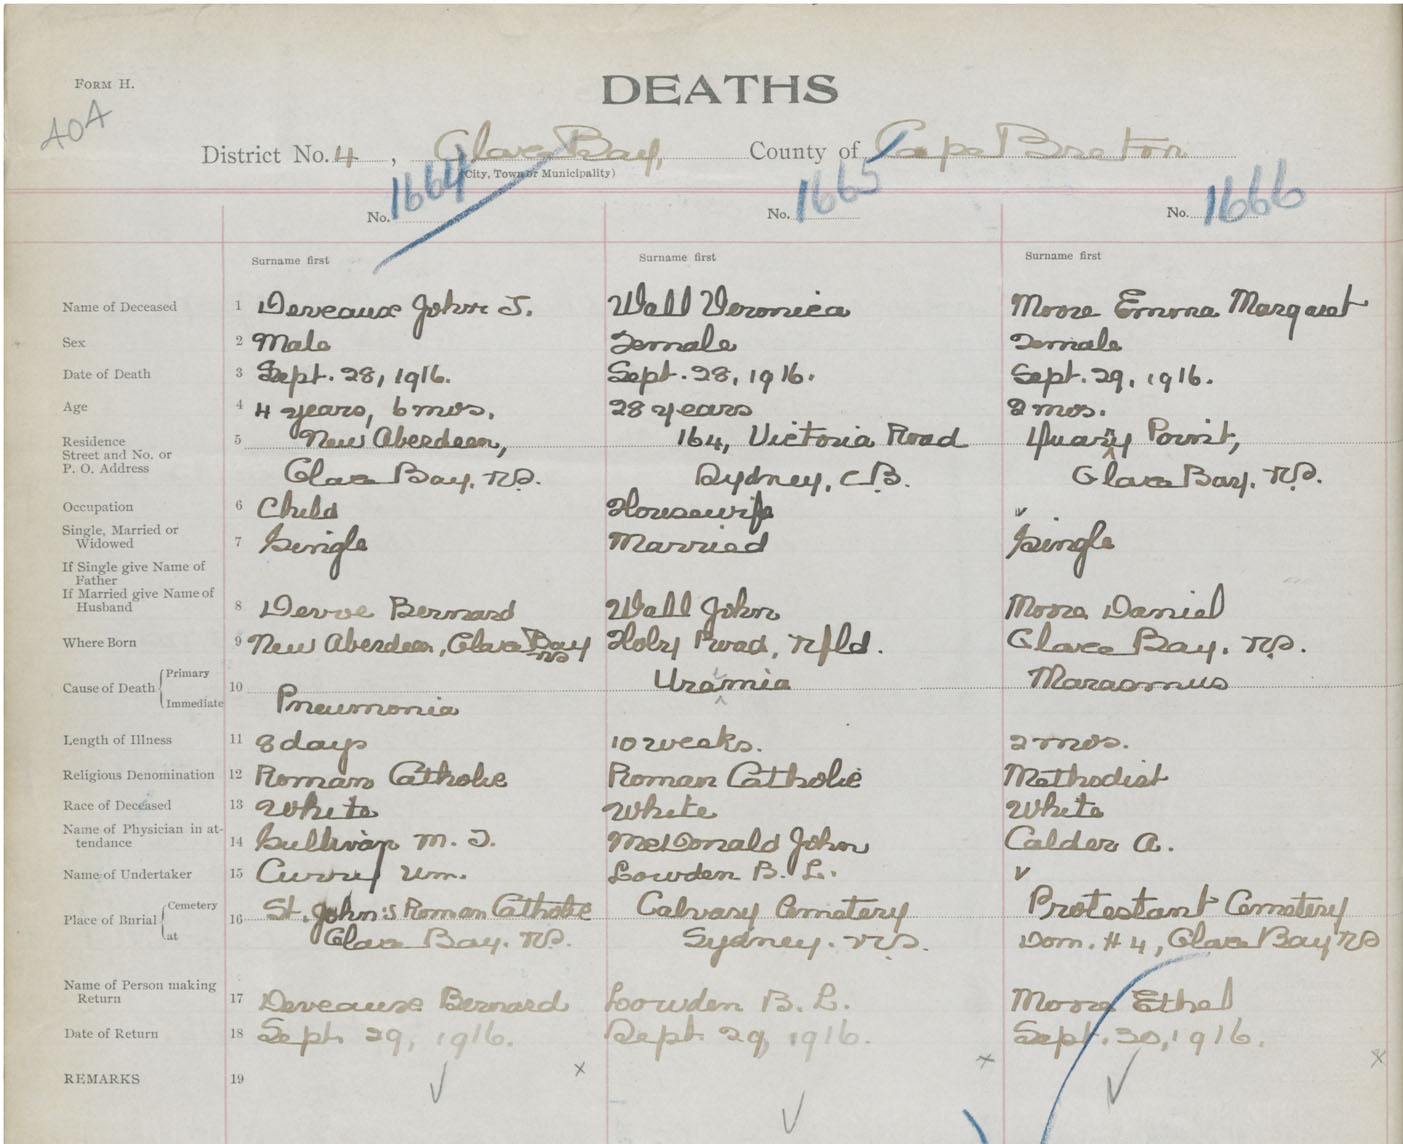 FORM H.
DEATHS
404
District No. 4, Glace Bay, County of Cape Breton
(City, Town or Municipality)
No. 1664 No. 1665 No. 1666
Surname first Surname first Surname first
Name of Deceased 1 Deveaux John J. Wall Veronica Moore Emma Margaret
Sex 2 Male Female Female
Date of Death 3 Sept. 28, 1916. Sept. 28, 1916. Sept. 29, 1916.
Age 4 4 years, 6 mos. 28 years 2 mos.
Residence 5 New Aberdeen, 164, Victoria Road Quarry Point,
Street and No. or
P. O. Address Glace Bay, N.S. Sydney, C.B. Glace Bay, N.S.
Occupation 6 Child Housewife v
Single, Married or
Widowed 7 Single Married Single
If Single give Name of
Father
If Married give Name of
Husband 8 Devoe Bernard Wall John Moore Daniel
Where Born 9 New Aberdeen, Glace Bay Holy Road, Nfld. Glace Bay, N.S.
NS
Primary
Cause of Death 10 Uramia Marasmus
Immediate Pneumonia
Length of Illness 11 8 days 10 weeks. 2 mos.
Religious Denomination 12 Roman Catholic Roman Catholic Methodist
Race of Deceased 13 White White White
Name of Physician in at-
tendance 14 Sullivan M. T. McDonald John Calder A.
Name of Undertaker 15 Curry Wm. Lowden B. L. v
Cemetery
Place of Burial 16 St. John's Roman Catholic Calvary Cemetery Protestant Cemetery
at Glace Bay. N.S. Sydney. N.S. Dom. # 4, Glace Bay NS
Name of Person making
Return 17 Deveaux Bernard Lowden B. L. Moore Ethel
Date of Return 18 Sept 29, 1916. Sept 29, 1916. Sept. 30, 1916.
REMARKS 19